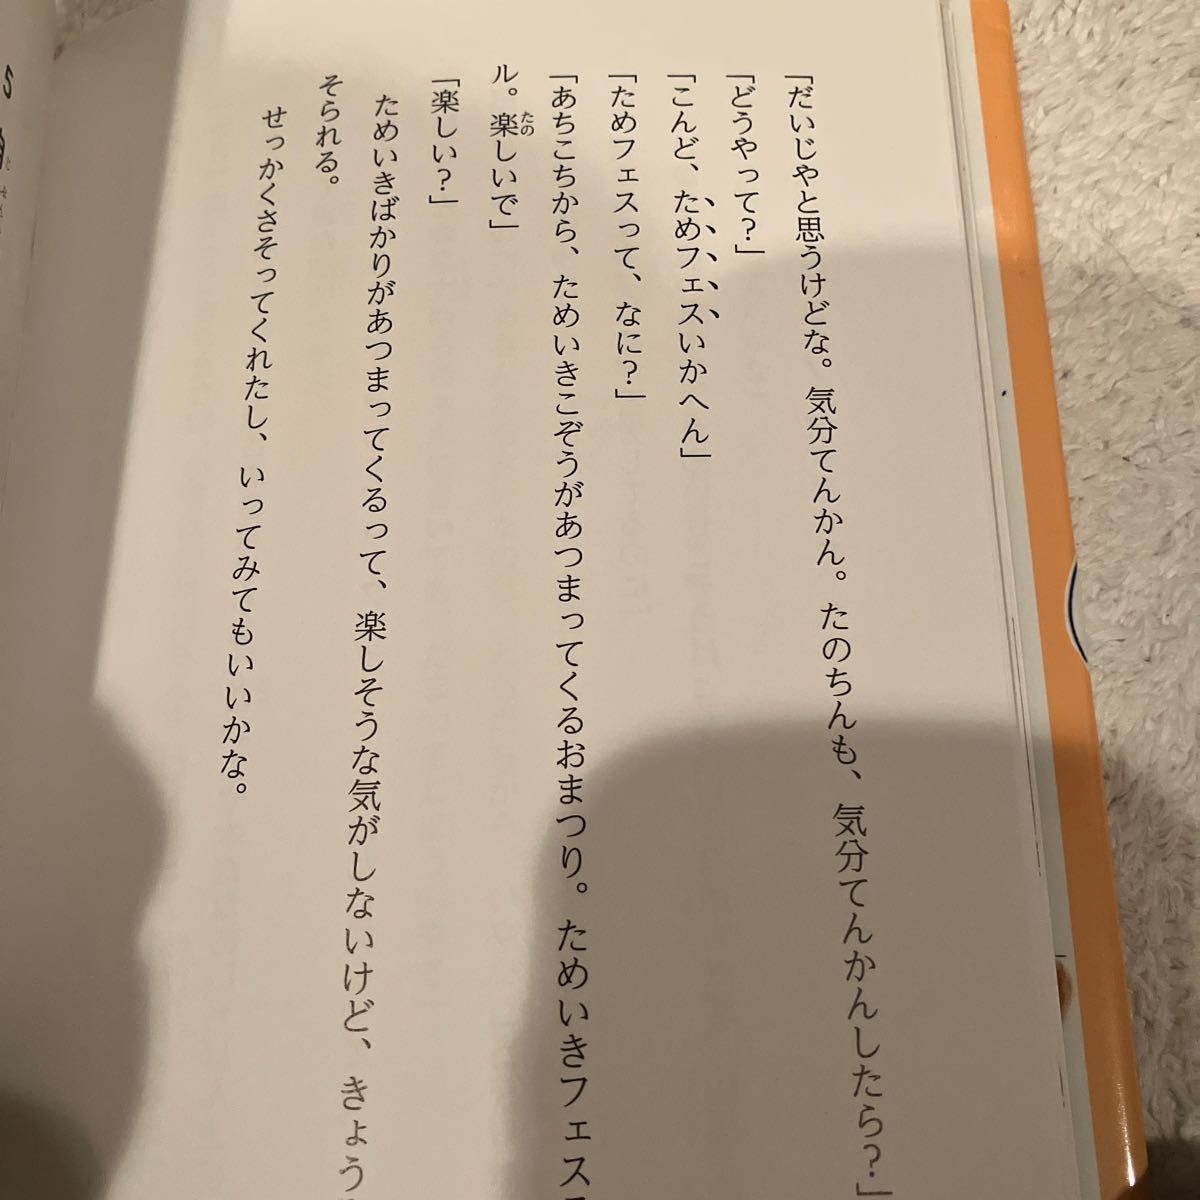 「だいじやと思うけどな。気分てんかん。たのちんも、気分てんかんしたら？」
「どうやって？」
「こんど、ためフェスいかへん」
「ためフェスって、なに？」
「あちこちから、ためいきこぞうがあつまってくるおまつり。ためいきフェス
ル。楽しいで」
「楽しい？」
ためいきばかりがあつまってくるって、楽しそうな気がしないけど、きょう
そられる。
せっかくさそってくれたし、いってみてもいいかな。